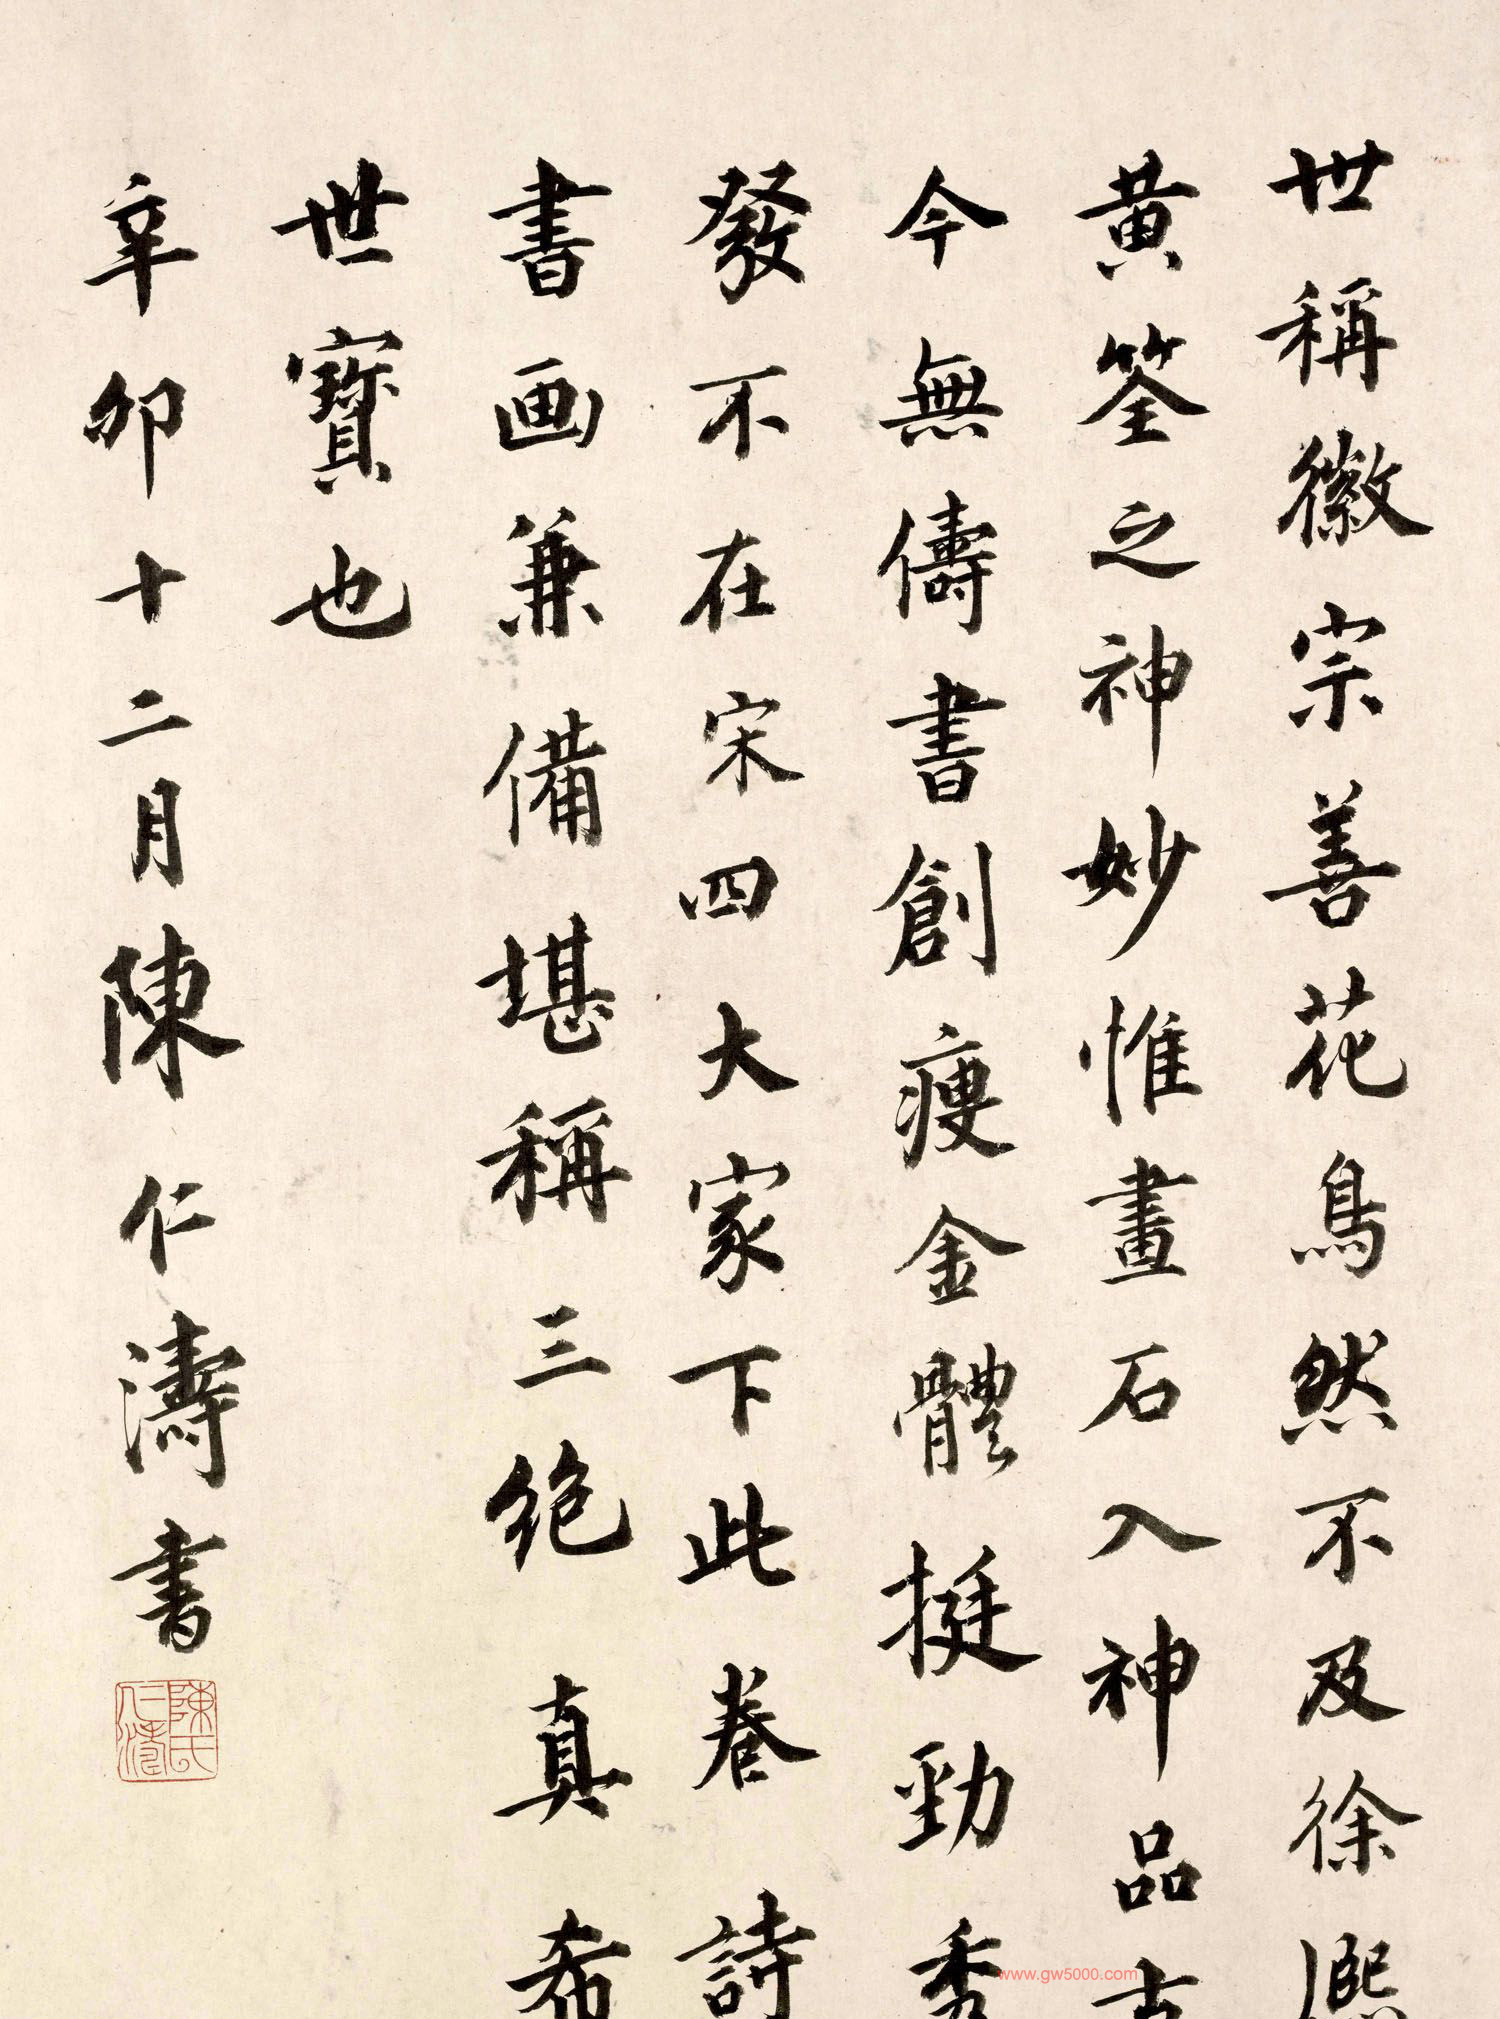 世稱徽宗善花鳥然不及徐熙
黄筌之神妙惟畫石入神品古
今無儔書創瘦金體挺勁秀
發不在宋四大家下此卷詩
書画兼備堪稱三絶真希
世寶也
辛卯十二月陳仁濤書
陳氏仁濤
www.gw5000.com